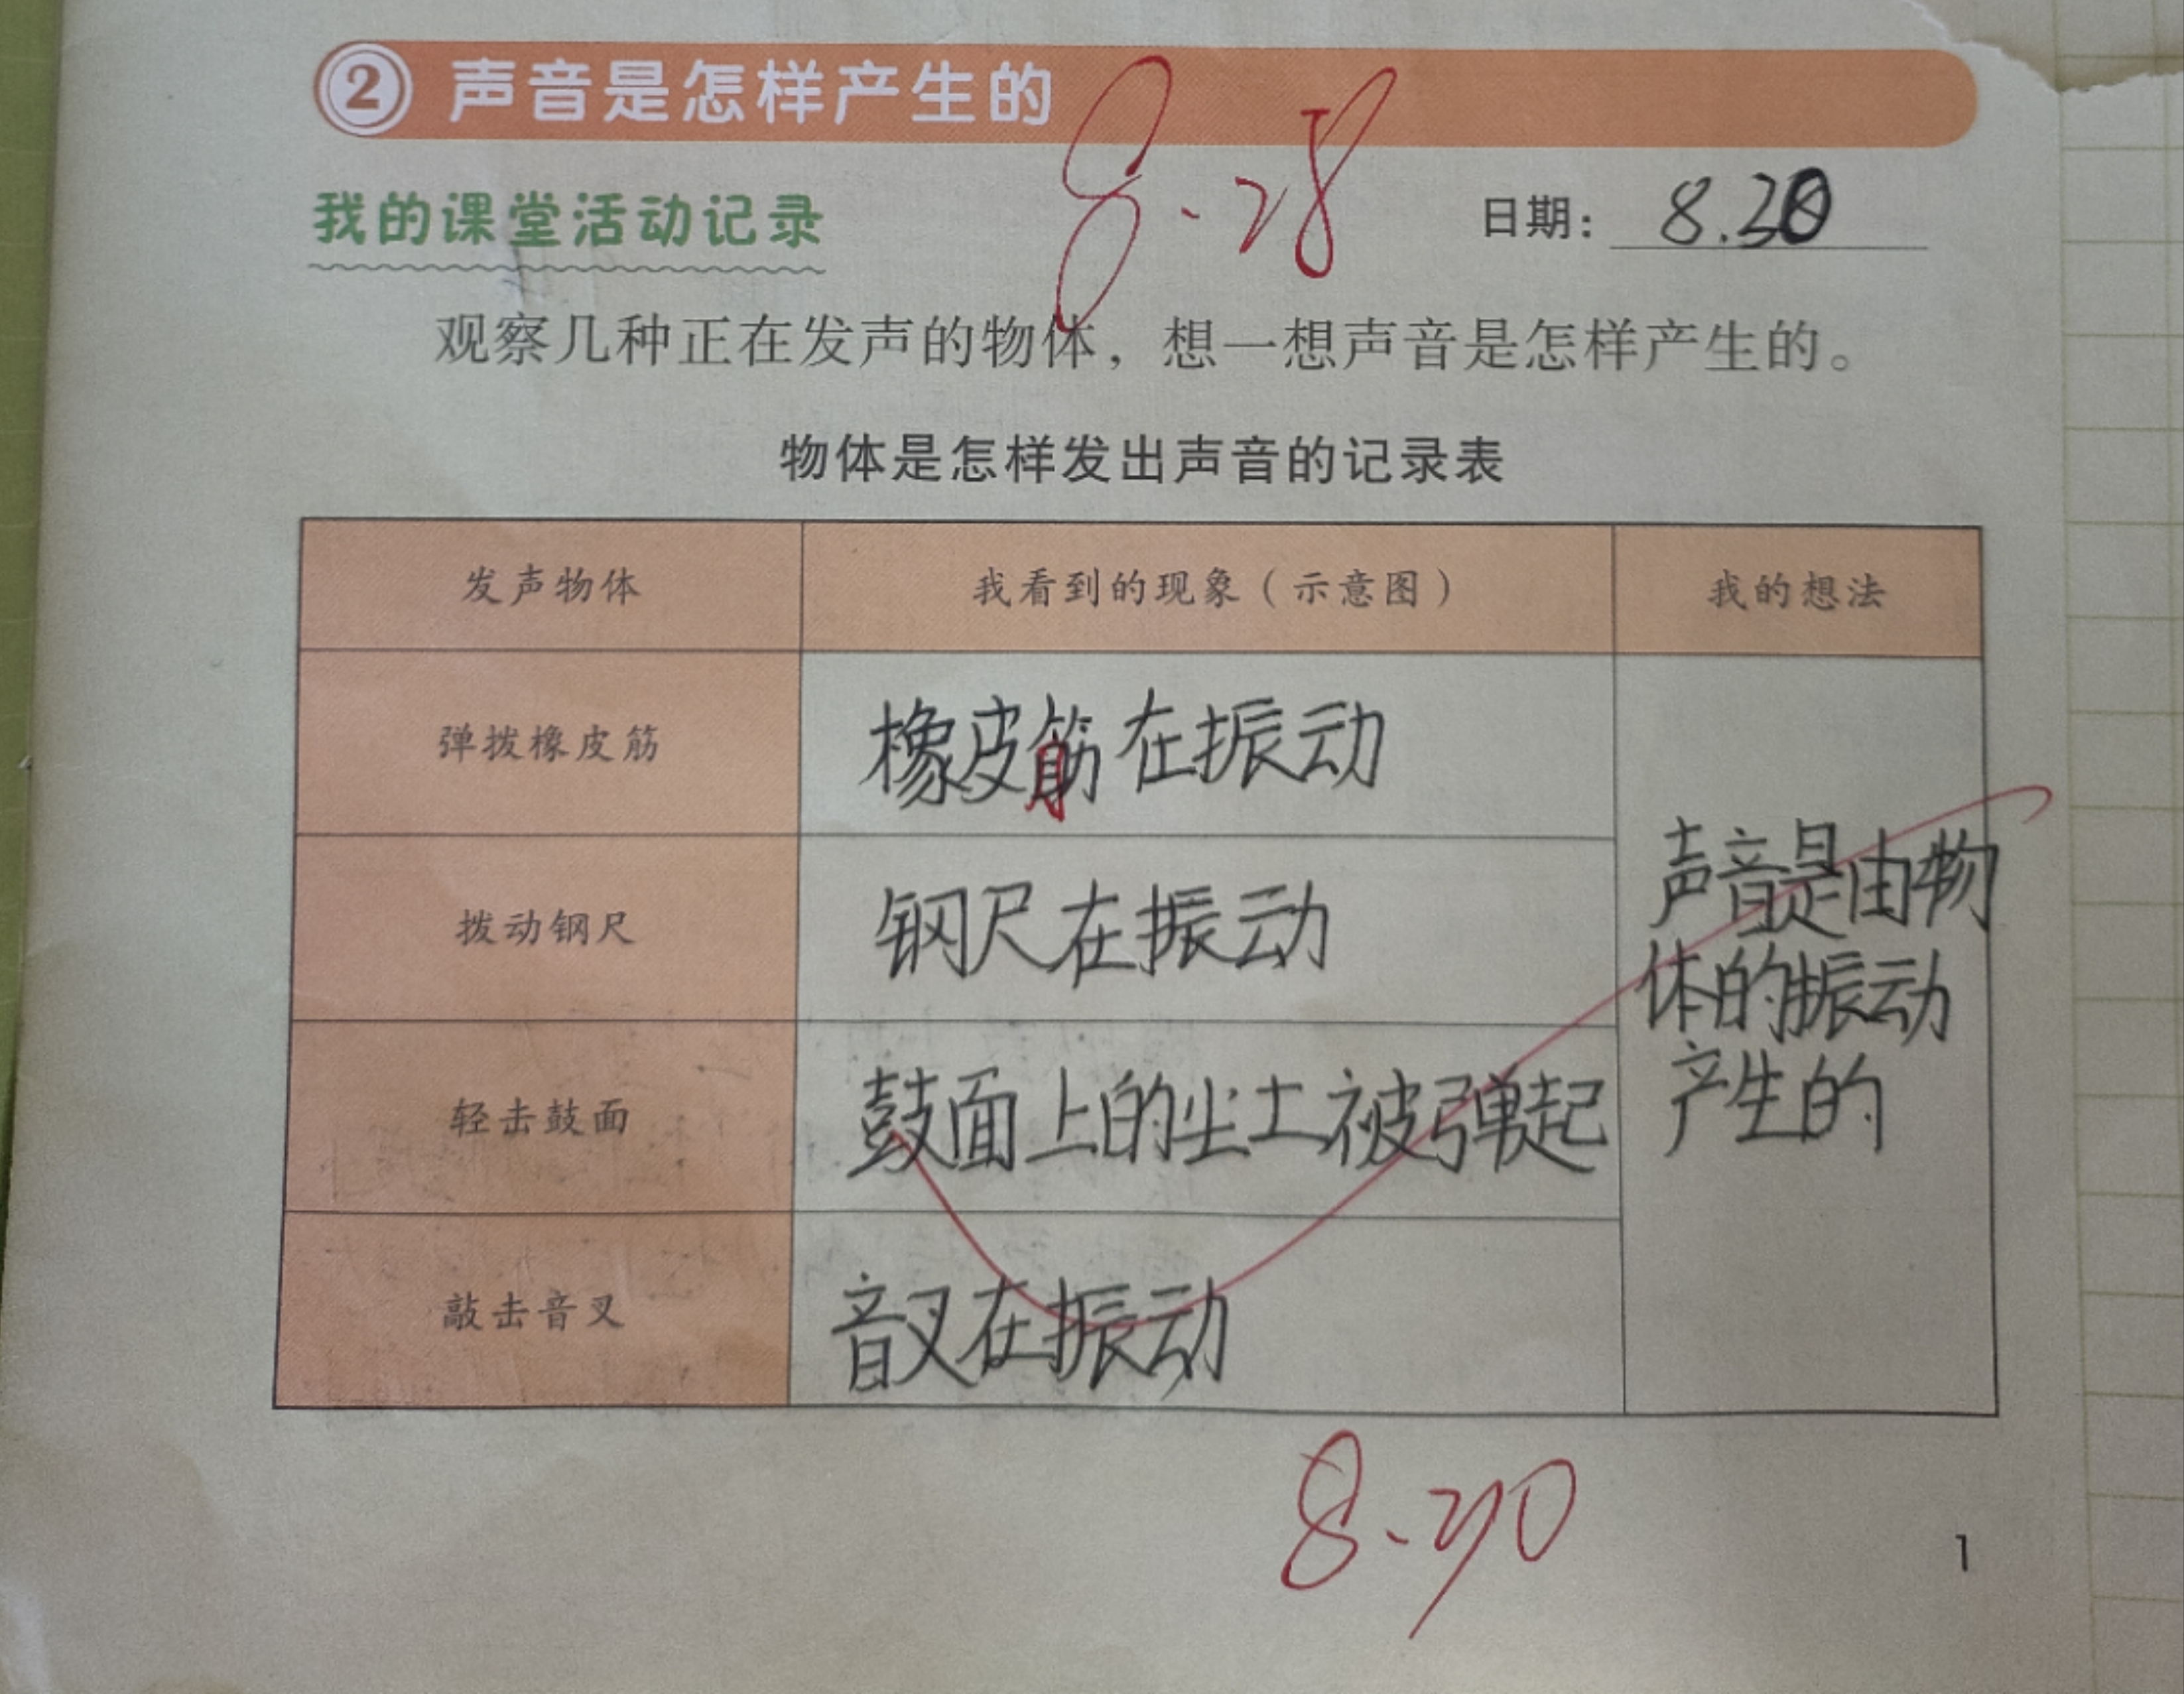 2 声音是怎样产生的
8.28
我的课堂活动记录
日期：
观察几种正在发声的物体，想一想声音是怎样产生的。
物体是怎样发出声音的记录表
发声物体 我看到的现象（示意图） 我的想法
弹拨橡皮筋 橡皮筋在振动
拨动钢尺 钢尺在振动
轻击鼓面 鼓面上的尘土被弹起
敲击音叉 音叉在振动
声音是由物
体的振动
产生的
1